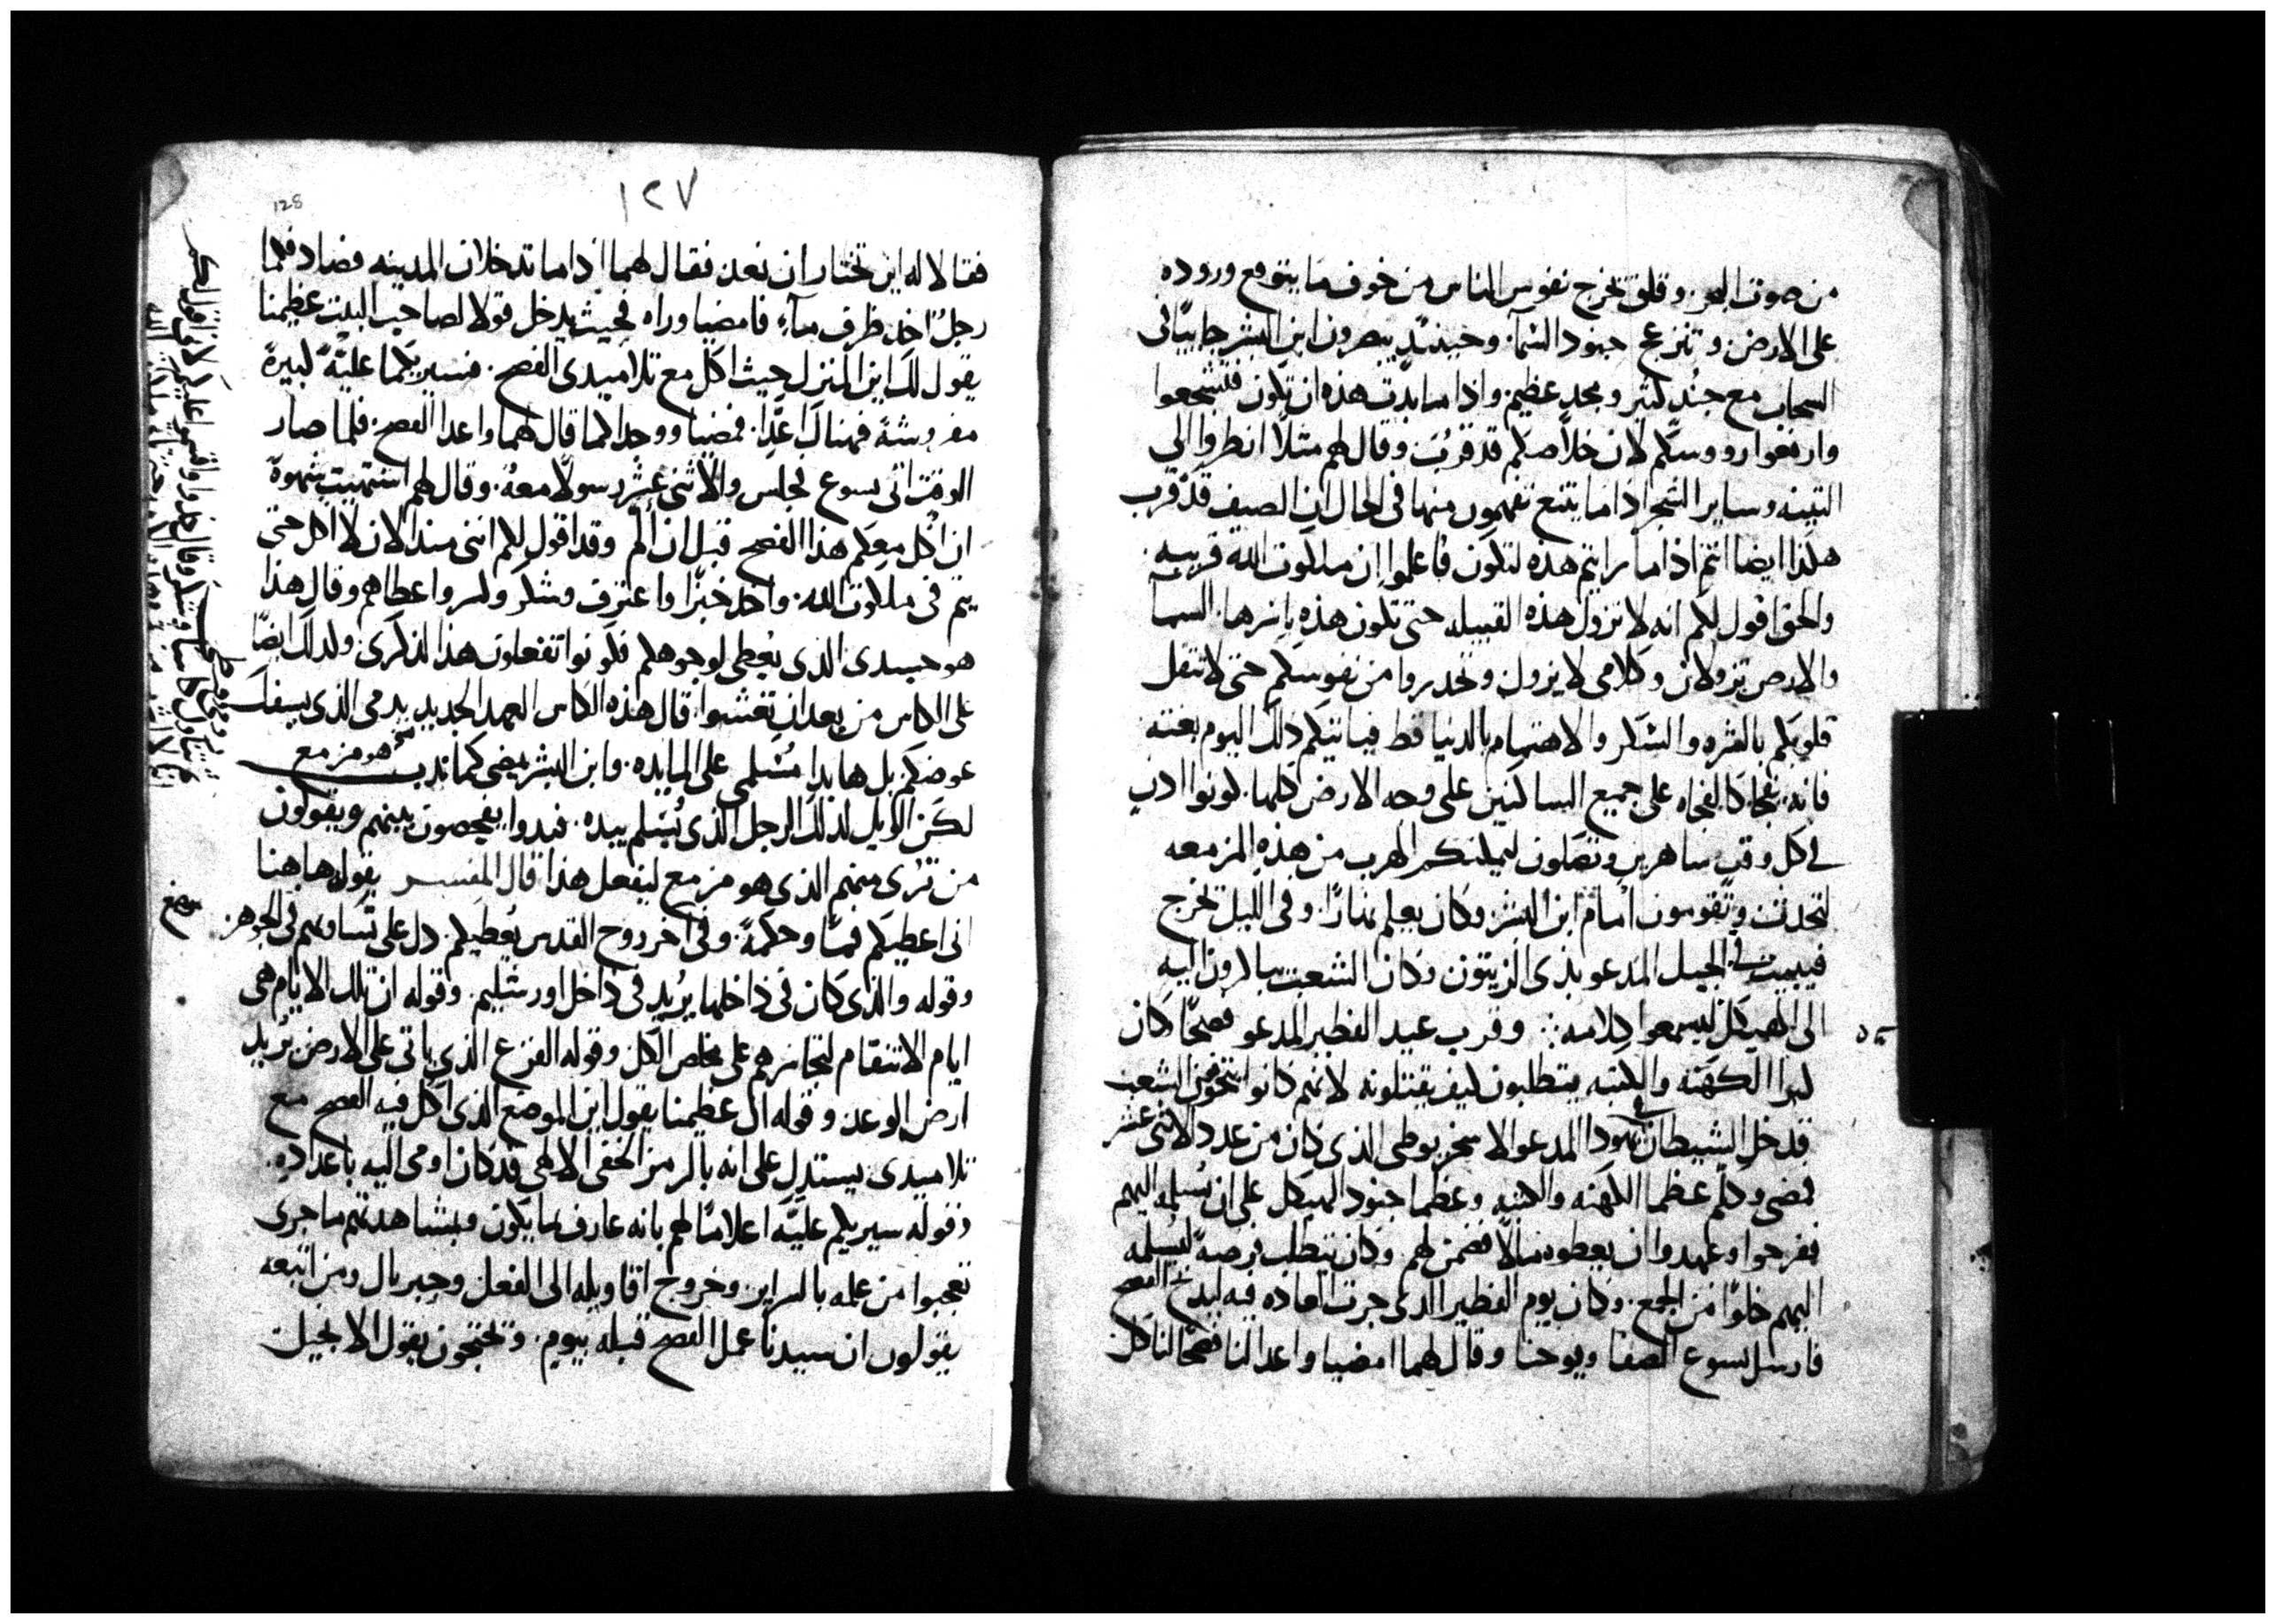 من صوت البحر. وقلق تخرج نفوس الناس من خوف ما يتوقع وروده
على الارض. وتنزعج جنود السما. وحينئذ يبصرون ابن البشر جاييًا فى
السحاب مع جند كثير ومجد عظيم. واذا ما بدت هذه ان تكون فتشجعوا
وارفعوا رووسكم لان خلاصكم قد قربت وقال لهم مثلا انظروا الى
التينه وساير الشجر اذا ما يتنع تفهمون منها فى الحال ان الصيف قد قرب
هكذا ايضا انتم اذا ما رايتم هذه لتكون فاعلموا ان ملكوت الله قريبه.
والحق اقول لكم انه لا تزول هذه القبيله حتى تكون هذه باسرها. السما
والارض تزولان وكلامى لا يزول وتحدروا من نفوسكم حتى لا تثقل
قلوبكم بالشره والسكر والاهتمام بالدنيا قط فياتيكم ذلك اليوم بغته
فانه كالفجاه على جميع الساكنين على وجه الارض كلها. كونوا اذن
فى كل وقت ساهرين وتصلون ليمكنكم الهرب من هذه المزمعه
لتحدث وتقومون امام ابن البشر وكان يعلم نهارًا. وفى الليل تخرج
فيبيت فى الجبل المدعو بذى الزيتون وكان الشعب يبادرون اليه
الى الهيكل ليسمعوا كلامه ∴ وقرب عيد الفطير المدعو فصحًا كان
كبرا الكهنه والكتبه يتطلبون كيف يقتلونه لانهم كانوا يتخوفون الشعب
قد دخل الشيطان فى يهودا المدعو الاسخريوطى الذى كان من عدد الاثنى عشر
فمضى وكلم عظما الكهنه والكتبه وعظما جنود الهيكل على ان يُسلمه اليهم
ففرحوا وعهدوا ان يعطوه مالًا فضمن لهم. وكان يتطلب فرصةً ليُسلمه
اليهم خلوًا من الجمع. وكان يوم الفطير الذى جرت العاده فيه ليذبح الفصح
فارسل يسوع الصفا ويوحنا وقال لهما امضيا واعدا لنا فصحًا لناكل
١٢٧
128
فقالا له اين تختار ان نعد. فقال لهما اذا ما تدخلان المدينه فصادفكما
رجلُ اخذ ظرف ماء. فامضيا وراه فحيث يدخل قولا لصاحب البيت عظيمنا
يقول لك اين المنزل حيث اكل مع تلاميدى الفصح. فسيريكما عليّةً كبيرةً
مفروشةً فهناك اعدَّا. فمضيا ووجدا كما قال لهما واعدا الفصح. فلما صار
الوقت اتى يسوع فجلس والاثنى عشر رسولًا معهُ. وقال لهم اشتهيت شهوةً
ان اكل معكم هذا الفصح قبل ان الم وقد اقول لكم اننى منذ الان لا اكل حتى
يتم فى ملكوت الله. واخذ خبزًا واعترف وشكر وكسر واعطاهم وقال هذا
هو جسدى الذى يُعطى لوجوهكم فكونوا تفعلون هذا لذكرى. ولذلك ايضًا
على الكاس من بعد ان تعشوا قال هذه الكاس العهد الجديد بدمى الذى يسفك
عوضكم. بل هابدا مُسَلمى على المايده. وابن البشر يمضى كما ندب هو مزمع
لكن الويل لذلك الرجل الذى يُسَلم بيده. فبدوا يفحصون بينهم ويقولون
من ترى منهم الذى هو مزمع ليفعل هذا قال المفسر يقول هاهنا
انى اعطيكم فمًا وحكمةً. وفى اخر روح القدس يُعطيكم. دل على تساويهم فى الجوهر.
وقوله والذى كان فى داخلها يُريد فى داخل اورشليم. وقوله ان تلك الايام هى
ايام الانتقام لتجاسرهم على مخلص الكل وقوله الفزع الذى ياتى على الارض يُريد
ارض الوعد وقوله ان عظيمنا يقول اين الموضع الذى اكل فيه الفصح مع
تلاميدى يستدل على انه بالرمز الخفى الالاهى قد كان اومى اليه باعداده.
وقوله سيريكم عليّه اعلامًا لهم بانه عارف بما يكون وبمشاهدتهم ما جرى
تعجبوا من علمه بالسراير. وخروج اقاويله الى الفعل وجبريال ومن اتبعه
يقولون ان سيدنا عمل الفصح قبله بيوم. وتحتجون بقول الانجيل